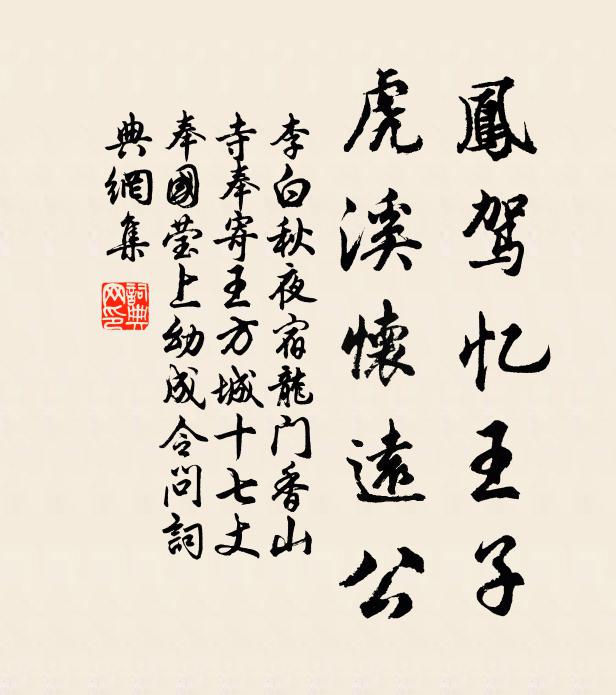 鳳驾忆王子
虎溪懷遠公
李白秋夜宿龍门香山
寺奉寄王方城十七丈
奉國莹上幼成令问詞
典網集
詞典网印